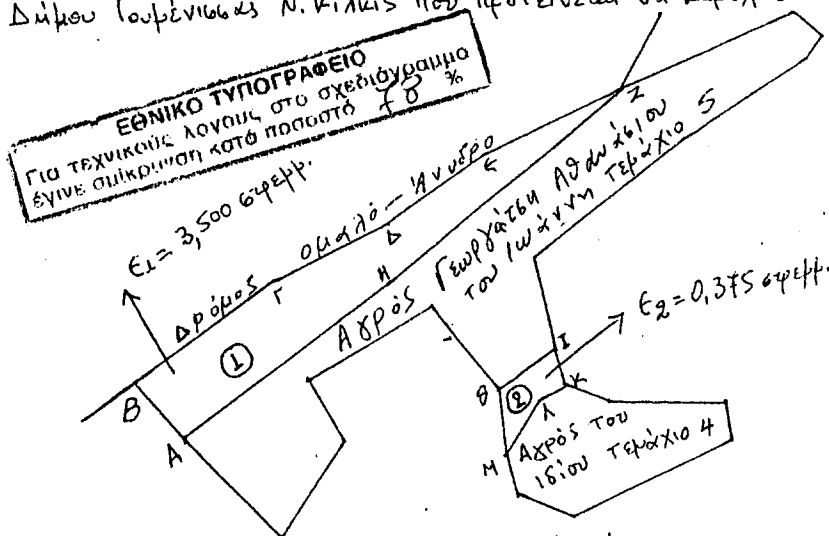 Δήμου Γουμένισσας Ν. Κιλκίς που προτείνεται να
ΕΘΝΙΚΟ ΤΥΠΟΓΡΑΦΕΙΟ
Για τεχνικούς λόγους στο σχεδιάγραμμα
έγινε σμίκρυνση κατά ποσοστό 78 %
Ε1 = 3,500 στρεμμ.
Δρόμος ομαλό - Άνυδρο
Αγρός Γεωργάτση Αθανάσιου
του Ιωάννη τεμάχιο 5
Ε2 = 0,375 στρεμμ.
Β
Α
Γ
Δ
Ε
Ζ
Η
①
Θ
Ι
Κ
Λ
Μ
②
Αγρός του
ιδίου τεμάχιο 4